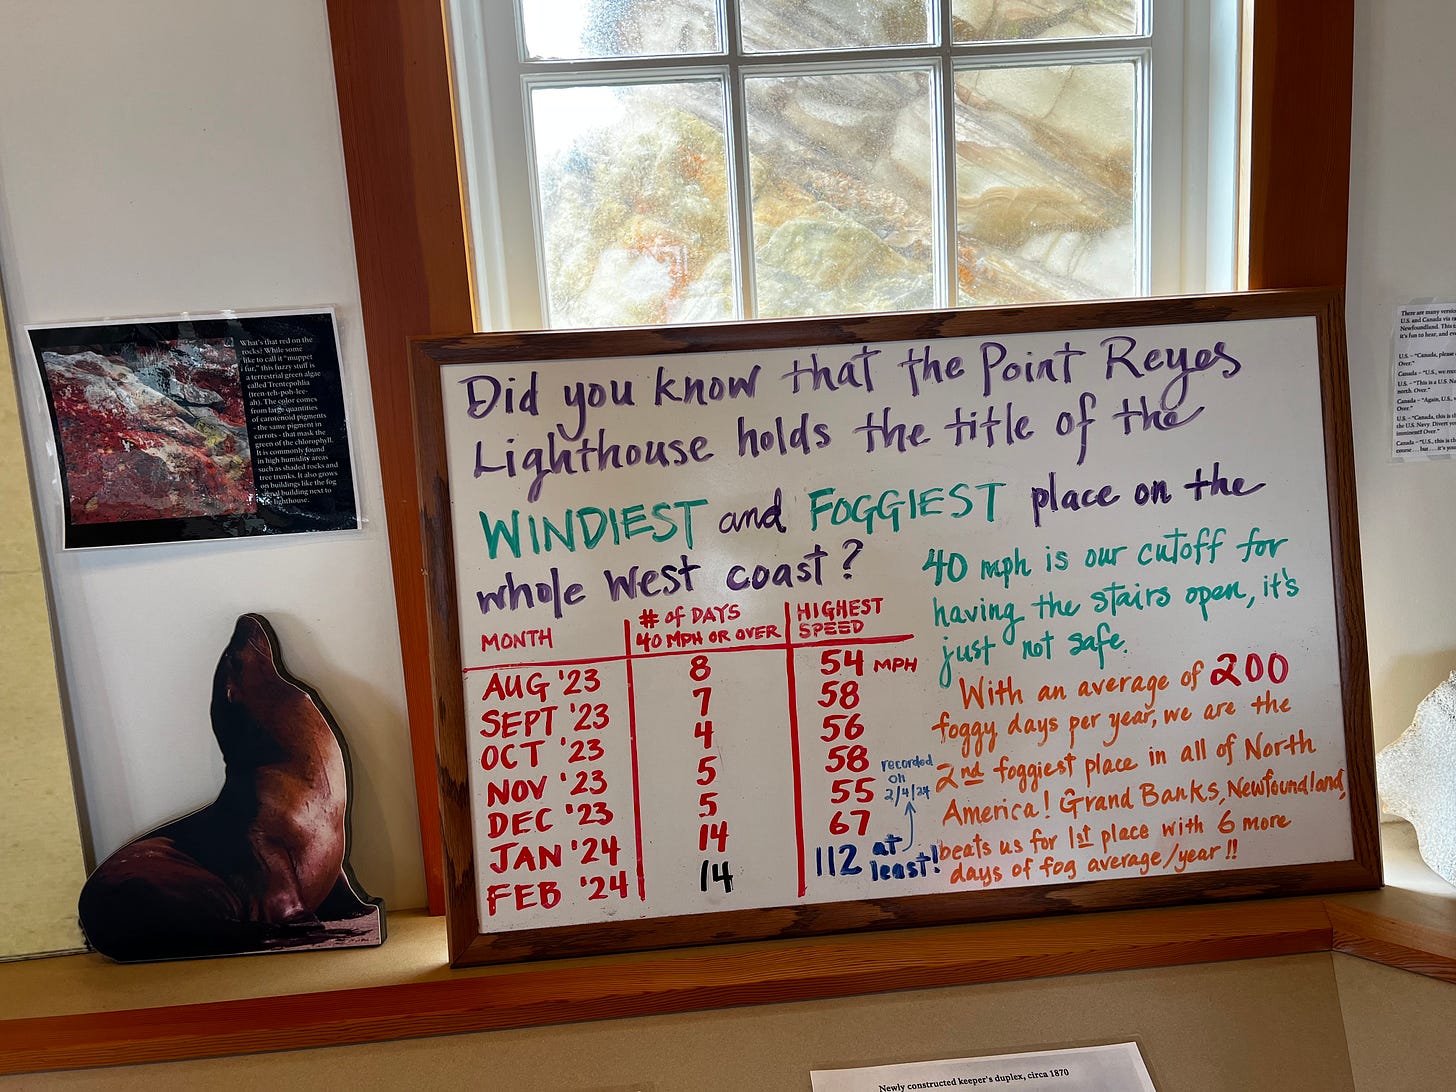 Did you know that the Point Reyes
Lighthouse holds the title of the
WINDIEST and FOGGIEST place on the
whole West coast?
MONTH # of DAYS 40 MPH OR OVER HIGHEST SPEED
AUG '23 8 54 MPH
SEPT '23 7 58
OCT '23 4 56
NOV '23 5 58
DEC '23 5 55
JAN '24 14 67
FEB '24 14 112 at least!
recorded
on
2/4/24
40 mph is our cutoff for
having the stairs open, it's
just not safe.
With an average of 200
foggy days per year, we are the
2nd foggiest place in all of North
America! Grand Banks, Newfoundland,
beats us for 1st place with 6 more
days of fog average/year!!
What's that red on the
rocks? While some
like to call it "muppet
fur," this fuzzy stuff is
a terrestrial green algae
called Trentepohlia
(tren-teh-poh-lee-
ah). The color comes
from large quantities
of carotenoid pigments
- the same pigment in
carrots - that mask the
green of the chlorophyll.
It is commonly found
in high humidity areas
such as shaded rocks and
tree trunks. It also grows
on buildings like the fog
signal building next to
lighthouse.
There are many versio
U.S. and Canada via ra
Newfoundland. This
it's fun to hear, and ev
U.S. – "Canada, please
Over."
Canada – "U.S., we rec
U.S. – "This is a U.S. N
north. Over."
Canada – "Again, U.S.,
Over."
U.S. – "Canada, this is th
the U.S. Navy. Divert you
imminent! Over."
Canada – "U.S., this is th
course . . . but . . . it's you
Newly constructed keeper's duplex, circa 1870